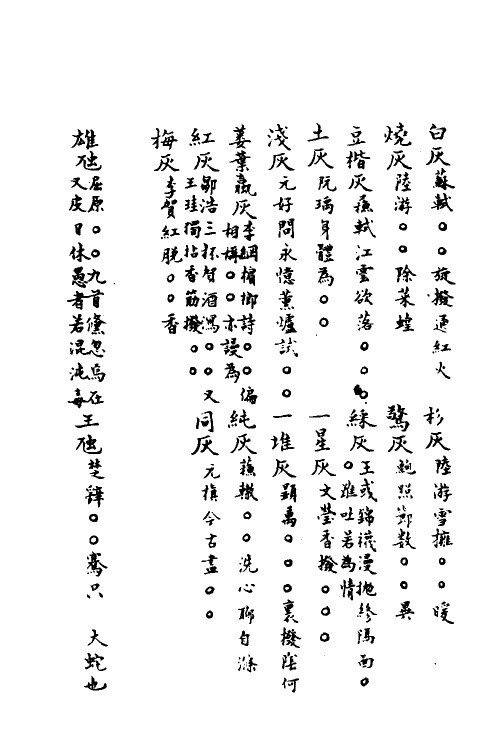 白灰蘇軾。。旋撥通紅火 杉灰陸游雪擁。。暖
燒灰陸游。。除菜蝗 驚灰鮑照鄧數。。異
豆楷灰蘇軾江雲欲落。。。 綵灰王或錦襪漫拋終隔面。。難吐若為情
土灰阮瑀身體為。。 一星灰文瑩香撥。。。
淺灰元好問永憶薰爐試。。 一堆灰。。。裏撥陰何
蔞葉蠃灰李綱檳榔詩。。偏相媾。。亦謾為 純灰蘇轍。。洗心聊自滌
紅灰鄒浩三杯智酒濁。。又王珪獨拈香筯撥。。 同灰元稹今古盡。。
梅灰李賀紅脫。。香
雄虺屈原。。九首儵忽焉在又皮日休愚者若混沌毒 王虺楚辭。。騫只 大蛇也